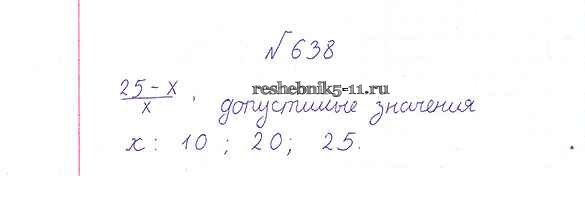 № 638
reshebnik5-11.ru
25 - x / x , допустимые значения
x: 10 ; 20; 25.